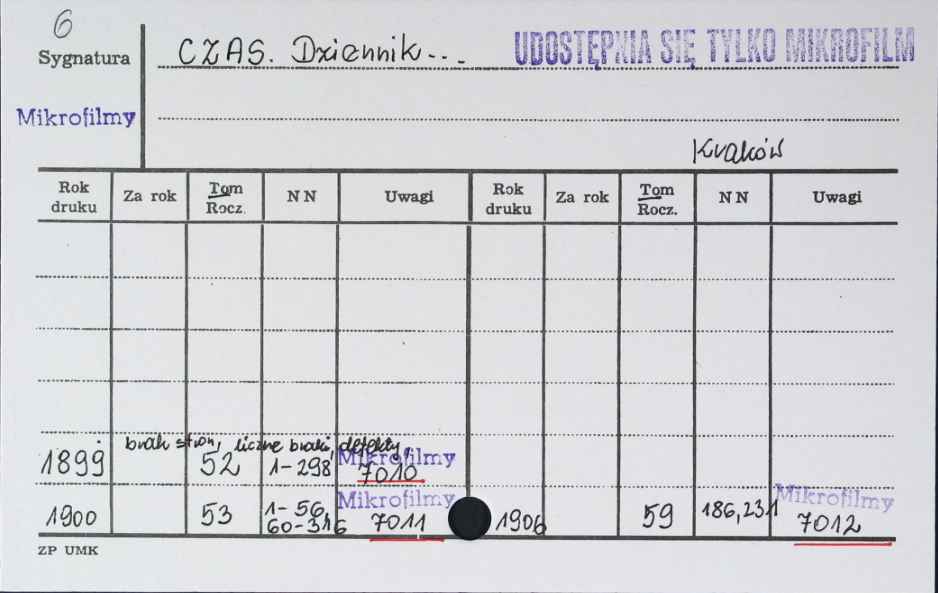 6
Sygnatura
CZAS. Dziennik...
UDOSTĘPNIA SIĘ TYLKO MIKROFILM
Mikrofilmy
Kraków
Rok druku Za rok Tom Rocz. NN Uwagi Rok druku Za rok Tom Rocz. NN Uwagi
brak stron, liczne braki, defekty,
1899 52 1-298 Mikrofilmy 7010
1900 53 1-56, 60-346 Mikrofilmy 7011 1906 59 186,231 Mikrofilmy 7012
ZP UMK